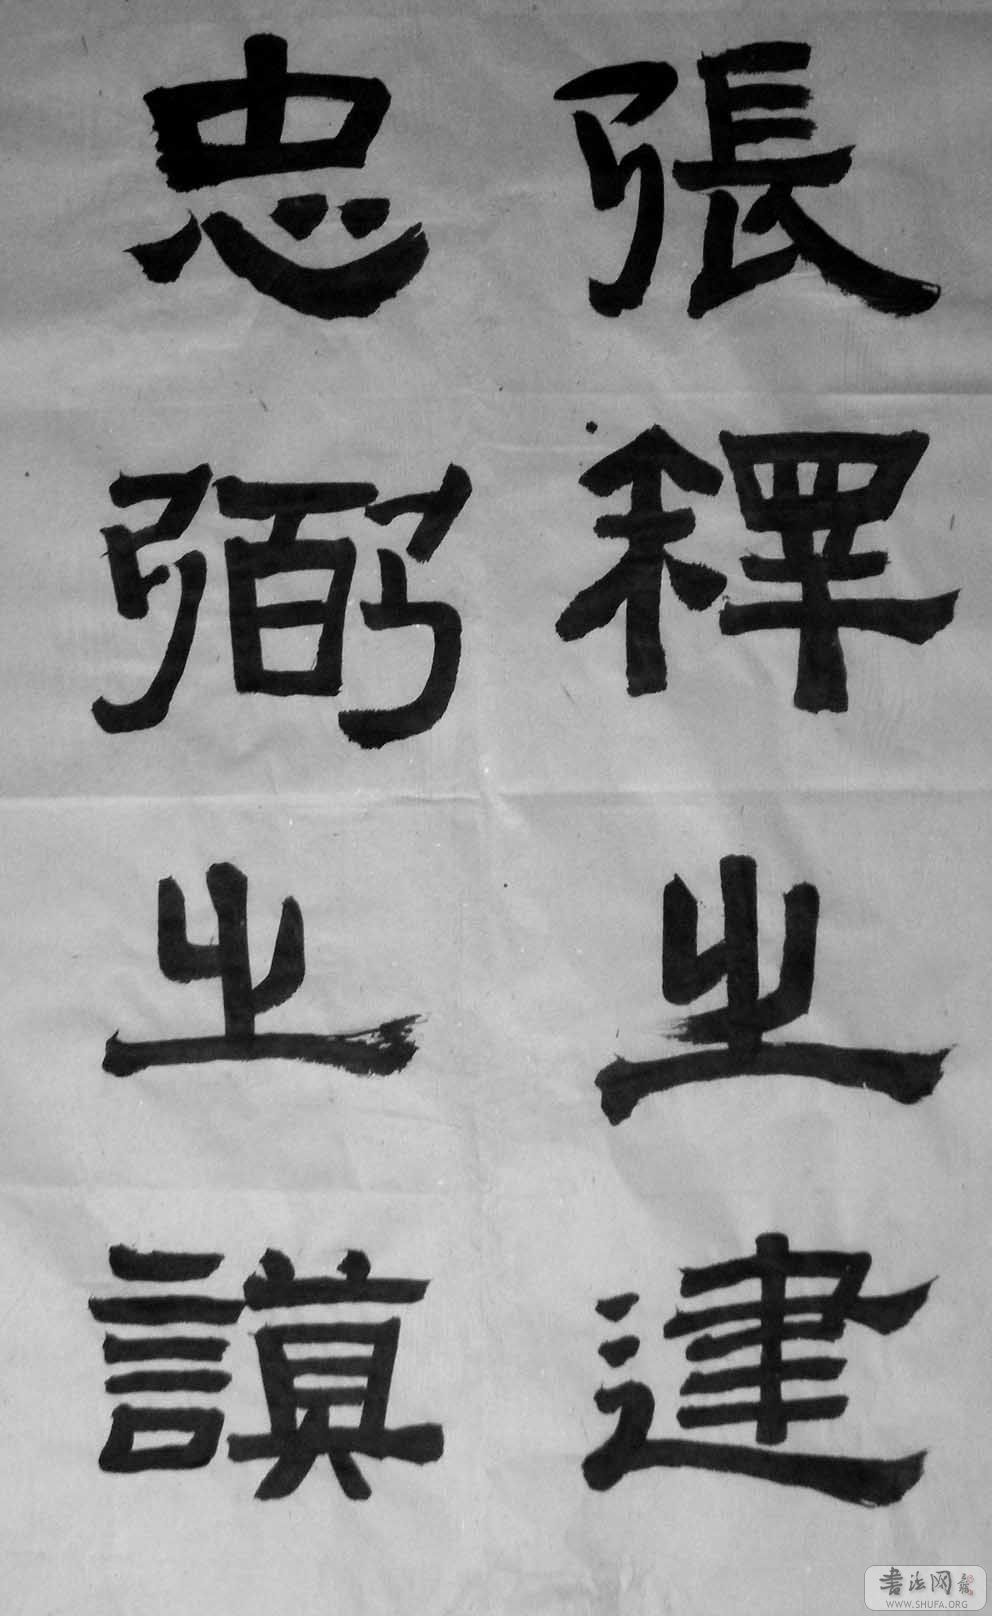 張釋之建
忠弼之謨
書法网
WWW.SHUFA.ORG